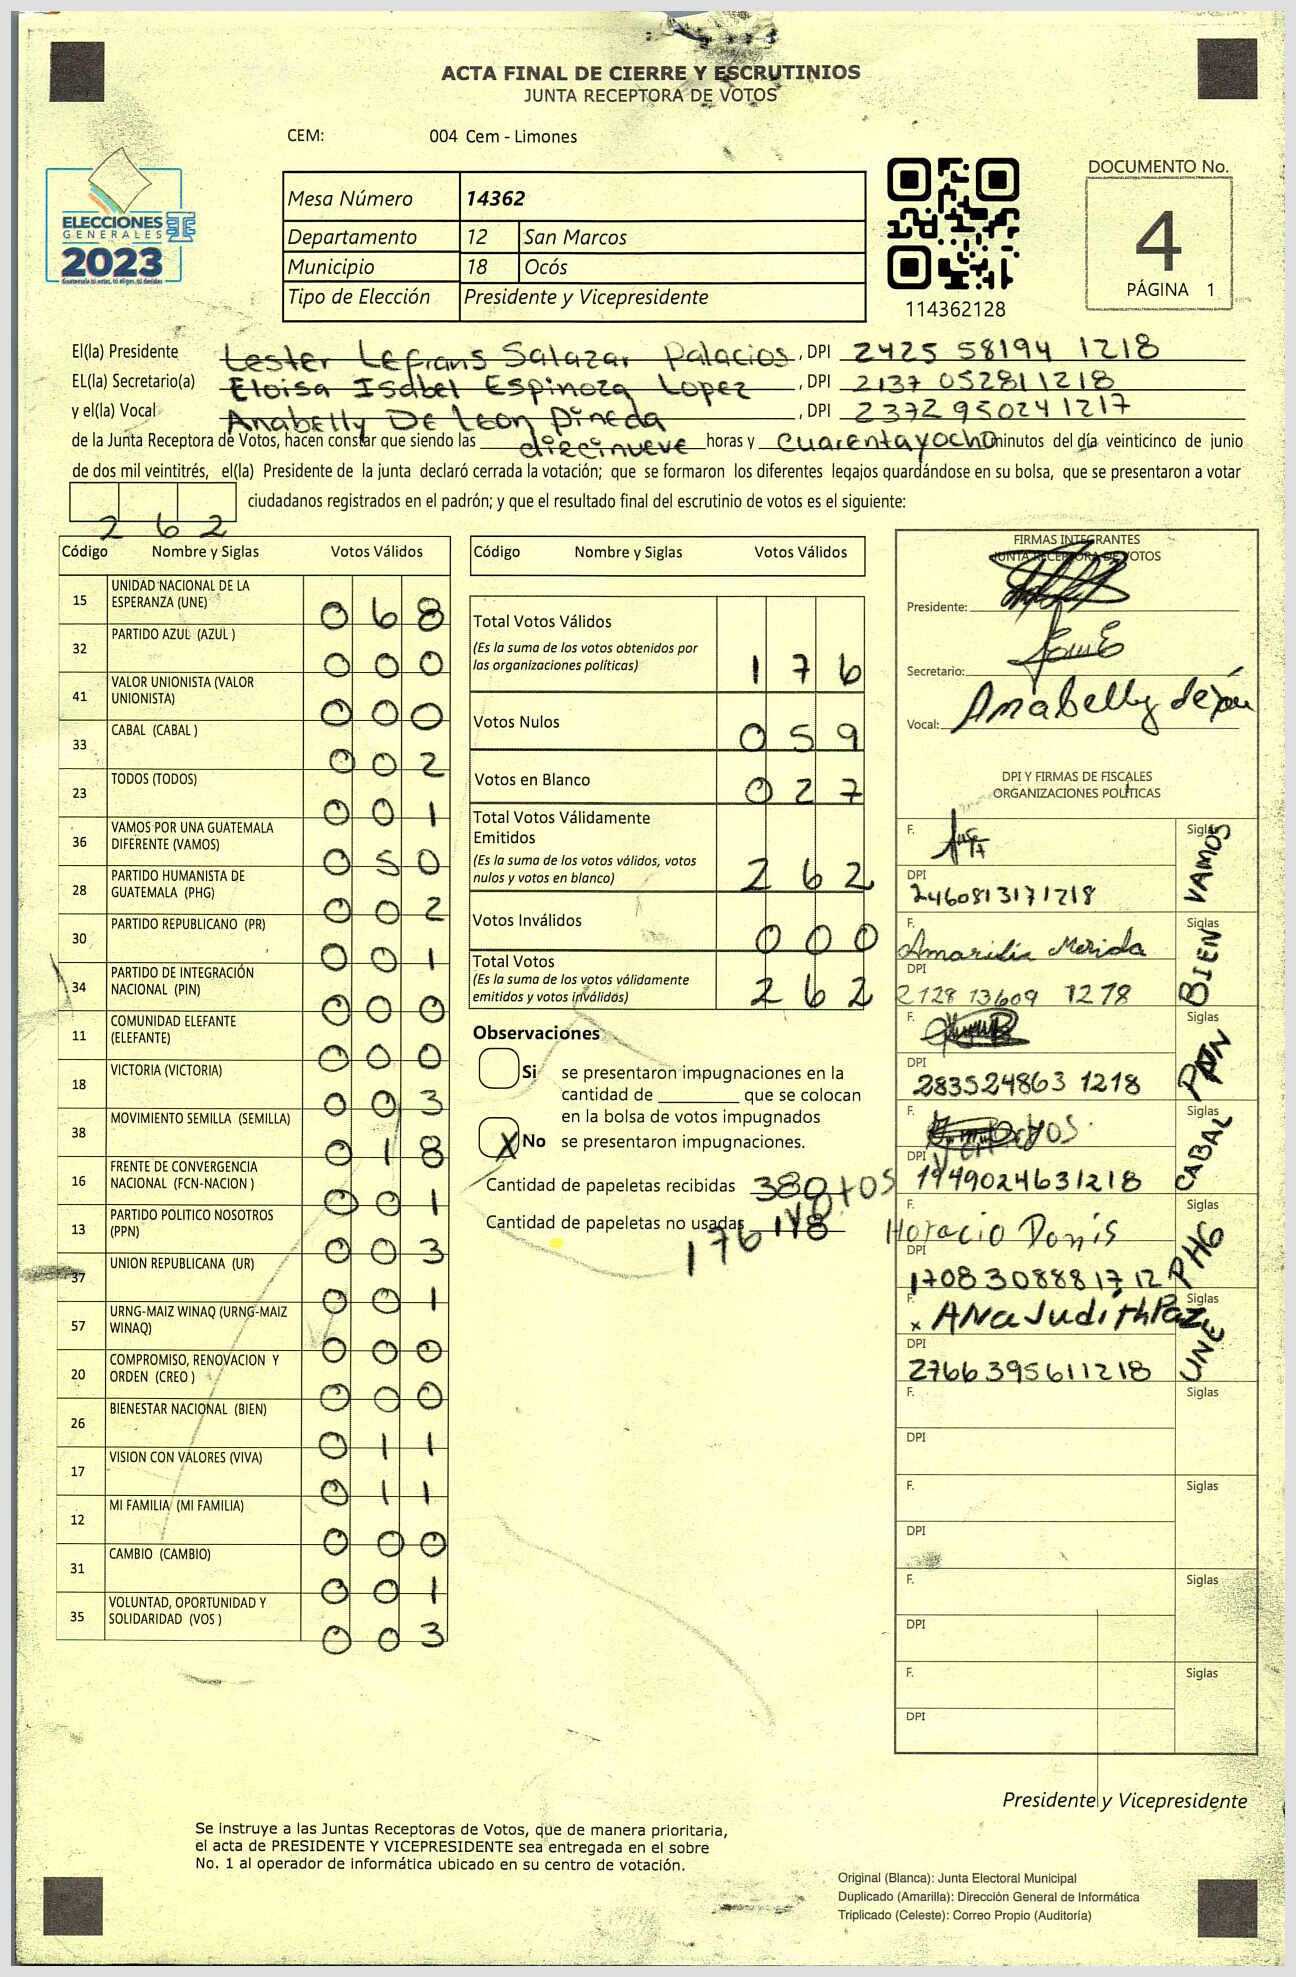 ACTA FINAL DE CIERRE Y ESCRUTINIOS
JUNTA RECEPTORA DE VOTOS
CEM: 004 Cem - Limones
ELECCIONES
GENERALES
2023
Mesa Número 14362
Departamento 12 San Marcos
Municipio 18 Ocós
Tipo de Elección Presidente y Vicepresidente
114362128
DOCUMENTO No.
4
PÁGINA 1
El(la) Presidente Lester Lefrans Salazar Palacios, DPI 2425 58194 1218
EL(la) Secretario(a) Eloisa Isabel Espinoza Lopez, DPI 2137 05281 1218
y el(la) Vocal Anabelly De Leon Pineda, DPI 2372 95024 1217
de la Junta Receptora de Votos, hacen constar que siendo las diecinueve horas y cuarentayocho minutos del día veinticinco de junio
de dos mil veintitrés, el(la) Presidente de la junta declaró cerrada la votación; que se formaron los diferentes legajos guardándose en su bolsa, que se presentaron a votar
262 ciudadanos registrados en el padrón; y que el resultado final del escrutinio de votos es el siguiente:
Código Nombre y Siglas Votos Válidos
15 UNIDAD NACIONAL DE LA ESPERANZA (UNE) 068
32 PARTIDO AZUL (AZUL ) 000
41 VALOR UNIONISTA (VALOR UNIONISTA) 000
33 CABAL (CABAL ) 002
23 TODOS (TODOS) 001
36 VAMOS POR UNA GUATEMALA DIFERENTE (VAMOS) 050
28 PARTIDO HUMANISTA DE GUATEMALA (PHG) 002
30 PARTIDO REPUBLICANO (PR) 001
34 PARTIDO DE INTEGRACIÓN NACIONAL (PIN) 000
11 COMUNIDAD ELEFANTE (ELEFANTE) 000
18 VICTORIA (VICTORIA) 003
38 MOVIMIENTO SEMILLA (SEMILLA) 018
16 FRENTE DE CONVERGENCIA NACIONAL (FCN-NACION ) 001
13 PARTIDO POLITICO NOSOTROS (PPN) 003
37 UNION REPUBLICANA (UR) 001
57 URNG-MAIZ WINAQ (URNG-MAIZ WINAQ) 000
20 COMPROMISO, RENOVACION Y ORDEN (CREO ) 000
26 BIENESTAR NACIONAL (BIEN) 011
17 VISION CON VALORES (VIVA) 011
12 MI FAMILIA (MI FAMILIA) 000
31 CAMBIO (CAMBIO) 001
35 VOLUNTAD, OPORTUNIDAD Y SOLIDARIDAD (VOS ) 003
Código Nombre y Siglas Votos Válidos
Total Votos Válidos 176
(Es la suma de los votos obtenidos por
las organizaciones políticas)
Votos Nulos 059
Votos en Blanco 027
Total Votos Válidamente
Emitidos 262
(Es la suma de los votos válidos, votos
nulos y votos en blanco)
Votos Inválidos 000
Total Votos 262
(Es la suma de los votos válidamente
emitidos y votos inválidos)
Observaciones
Si se presentaron impugnaciones en la
cantidad de ________ que se colocan
en la bolsa de votos impugnados
X No se presentaron impugnaciones.
Cantidad de papeletas recibidas 380 votos
Cantidad de papeletas no usadas 118
176
FIRMAS INTEGRANTES
JUNTA RECEPTORA DE VOTOS
Presidente:
Secretario:
Vocal: Anabelly de
DPI Y FIRMAS DE FISCALES
ORGANIZACIONES POLÍTICAS
F. Siglas VAMOS
DPI 2460813171218
F. Amarilis Merida Siglas BIEN
DPI 2128 13609 1218
F. Siglas PPN
DPI 283524863 1218
F. Siglas CABAL
DPI 1949024631218
F. Horacio Donis Siglas PHG
DPI 1708308881712
F. x Ana Judith Paz Siglas UNE
DPI 2766395611218
F. Siglas
DPI
F. Siglas
DPI
F. Siglas
DPI
F. Siglas
DPI
Presidente y Vicepresidente
Se instruye a las Juntas Receptoras de Votos, que de manera prioritaria,
el acta de PRESIDENTE Y VICEPRESIDENTE sea entregada en el sobre
No. 1 al operador de informática ubicado en su centro de votación.
Original (Blanca): Junta Electoral Municipal
Duplicado (Amarilla): Dirección General de Informática
Triplicado (Celeste): Correo Propio (Auditoría)